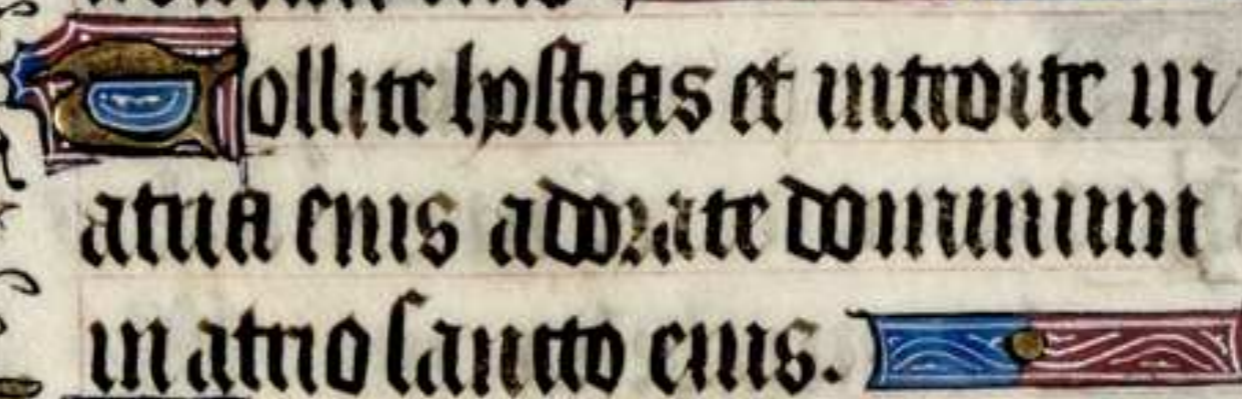 Tollite hostias et introite in
atria eius adorate dominum
in atrio sancto eius.